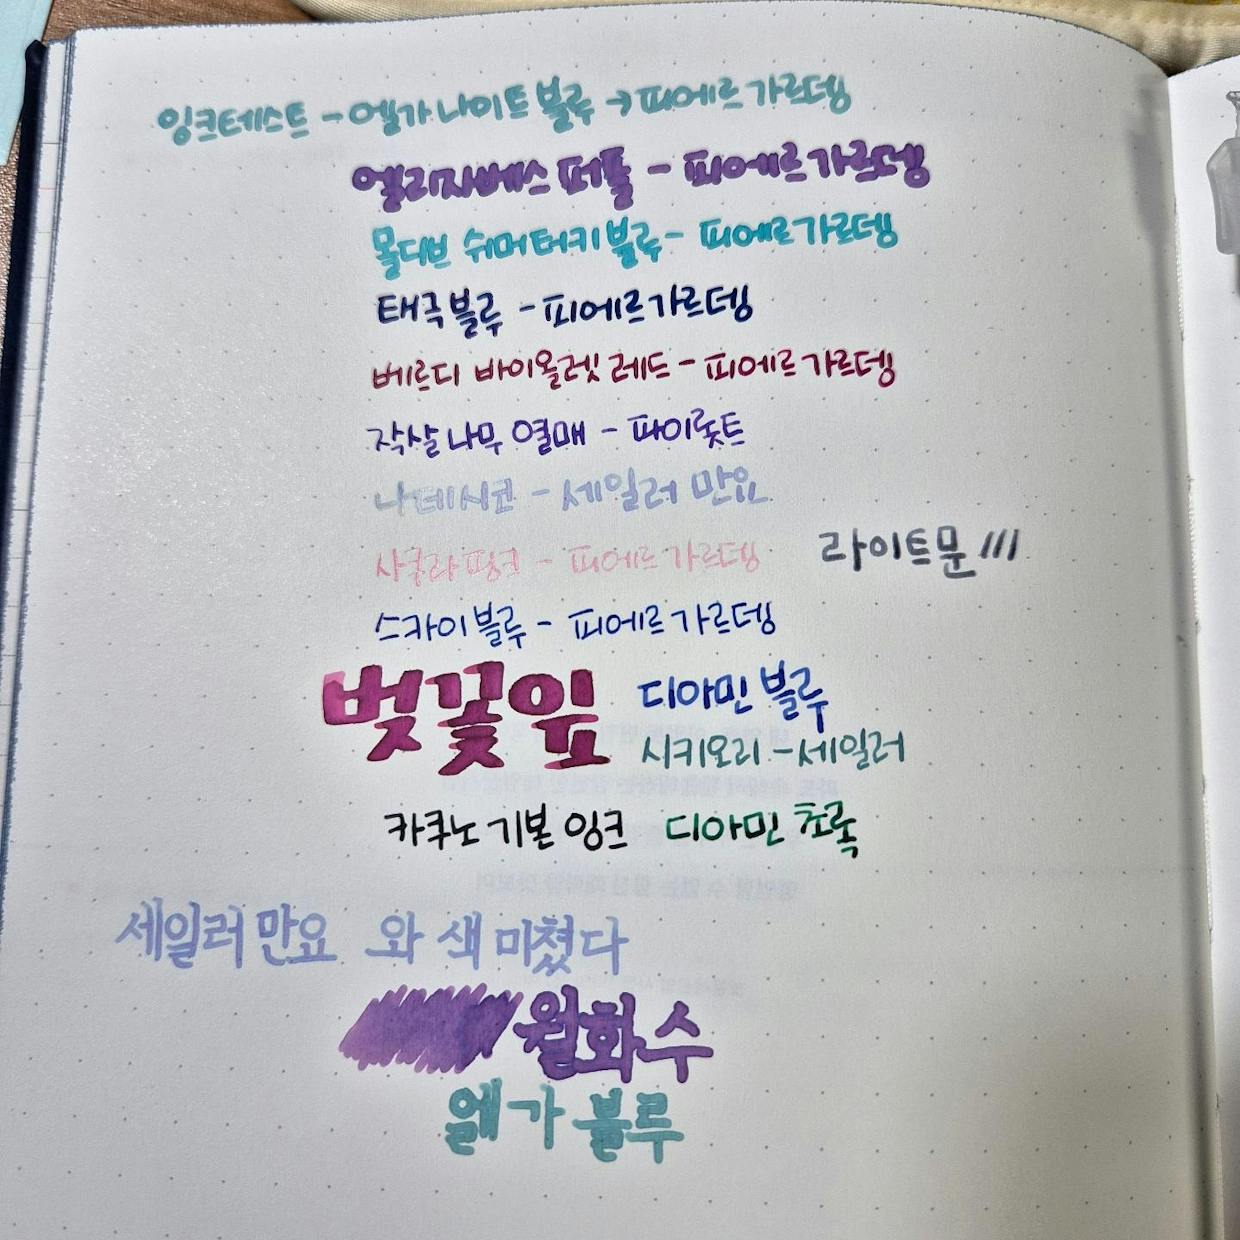 잉크테스트 - 엘가 나이트 블루 → 피에르 가르뎅
엘리자베스 퍼플 - 피에르 가르뎅
몰디브 쉬머 터키 블루 - 피에르 가르뎅
태극 블루 - 피에르 가르뎅
베르디 바이올렛 레드 - 피에르 가르뎅
작살나무 열매 - 파이롯트
나데시코 - 세일러 만요
사쿠라 핑크 - 피에르 가르뎅
라이트문 ///
스카이 블루 - 피에르 가르뎅
벚꽃잎 디아민 블루
시키오리 - 세일러
카쿠노 기본 잉크 디아민 초록
세일러 만요 와 색 미쳤다
월화수
엘가 블루